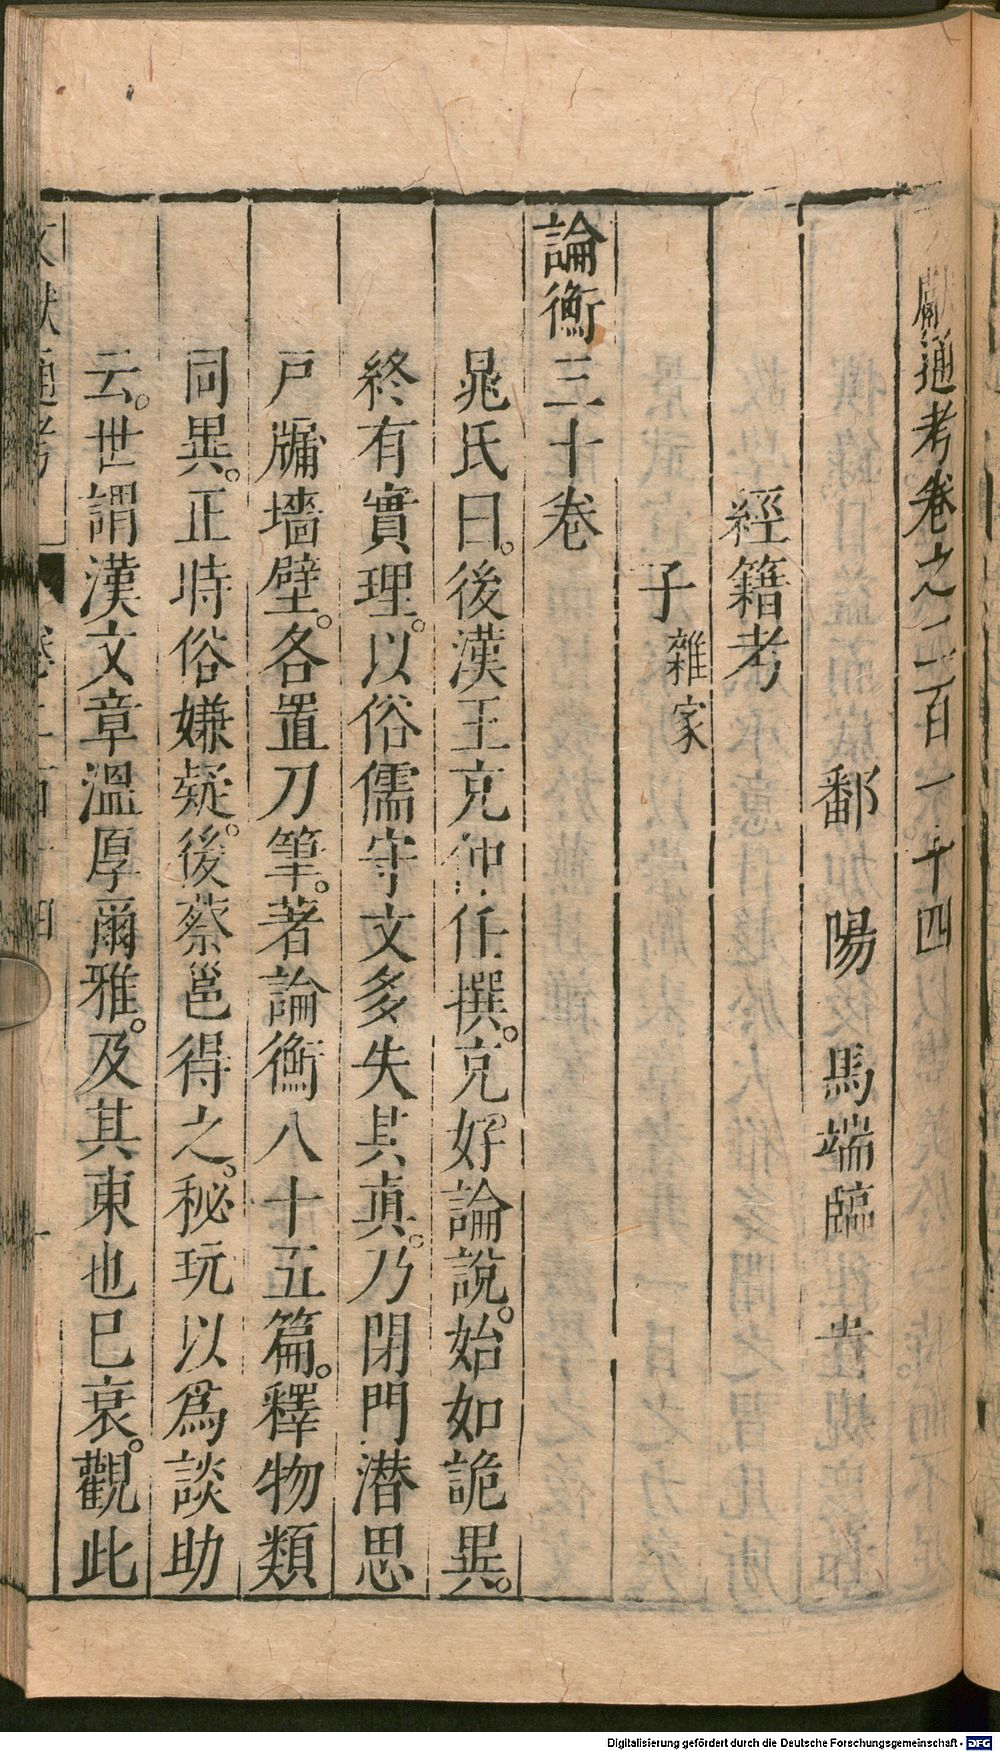 獻通考卷之二百一十四
鄱陽馬端臨 著
經籍考
子 雜家
論衡三十卷
晁氏曰。後漢王充仲任撰。充好論說。始如詭異。
終有實理。以俗儒守文多失其眞。乃閉門潜思
戸牖墻壁。各置刀筆。著論衡八十五篇。釋物類
同異。正時俗嫌疑。後蔡邕得之。秘玩以爲談助
云。世謂漢文章溫厚爾雅。及其東也巳衰。觀此
Digitalisierung gefördert durch die Deutsche Forschungsgemeinschaft - DFG